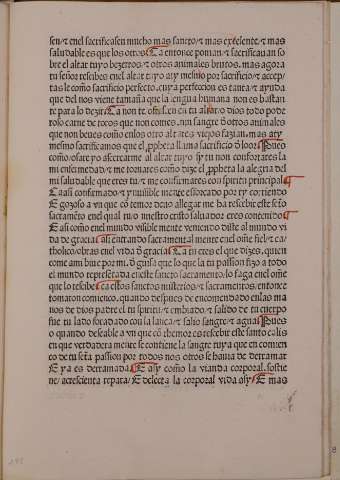 sen/ ⁊ enel sacrificasen mucho mas sancto/ ⁊ mas excelente/ ⁊ mas
saludable es que los otros ¶ Ca entonce ponian/ ⁊ sacrificauan so
bre el altar tuyo bezerros/ ⁊ otros animales brutos. mas agora
tu señor recibes enel altar tuyo a ty mesmo por sacrificio/ ⁊ accep
tas le como sacrificio perfecto. cuya perfeccion es tanta/ ⁊ ayuda
que del nos viene tamaña que la lengua humana non es bastan
te para lo dezir ¶ Ca non te ofrescen en tu altar o dios todo pode
roso carne de toros que non comes. nin sangre de otros animales
que non beues como enlos otro altares viejos fazian. mas a ty
mesmo sacrificamos que el propheta llama sacrificio de loor ¶ Pues
como osare yo ascercarme al altar tuyo sy tu non confortares la
mi enfermedad/ ⁊ me tornares como dize el propheta la alegria del
mi saludable que eres tu/ ⁊ me confirmares con spiritu principal ¶
¶ assi confirmado/ ⁊ ynuisible mente esforcado por ty corriendo
⁊ gozoso a vn que con temor deuo allegar me ha rescebir este secto
sacramento enel qual tu/o nuestro cristo saluador eres contenido ¶
E asi como enel mundo visible mente veniendo diste al mundo vi
da de gracia ¶ assi entrando sacramental mente enel ome fiel/ ⁊ ca
tholico/obras enel vida de gracia ¶ Ca tu eres el que dizes. quien
come ami biue por mi. de guisa que lo que la tu passion fizo a todo
el mundo represetada eneste sancto sacramento. lo faga enel ome
que lo rescibe ¶ Ca estos sanctos misterios/ ⁊ sacramentos. entonce
tomaron comienco. quando despues de encomendado enlas ma
nos de dios padre el tu spiritu/ ⁊ embiado/ ⁊ salido de tu cuerpo
fue tu lado foradado con la lança/ ⁊ salio sangre/ ⁊ agua ¶ Pues
o quando deseable a vn que con themor es rescebir este sancto calis
en que verdadera mente se contiene la sangre tuya que en comien
co de tu sancta passion por todos nos otros se hauia de derramar
E ya es derramada ¶ E asy como la vianda corporal. sostie
ne/ acrescienta repara/ ⁊ delecta la corporal vida asy ¶ E mas